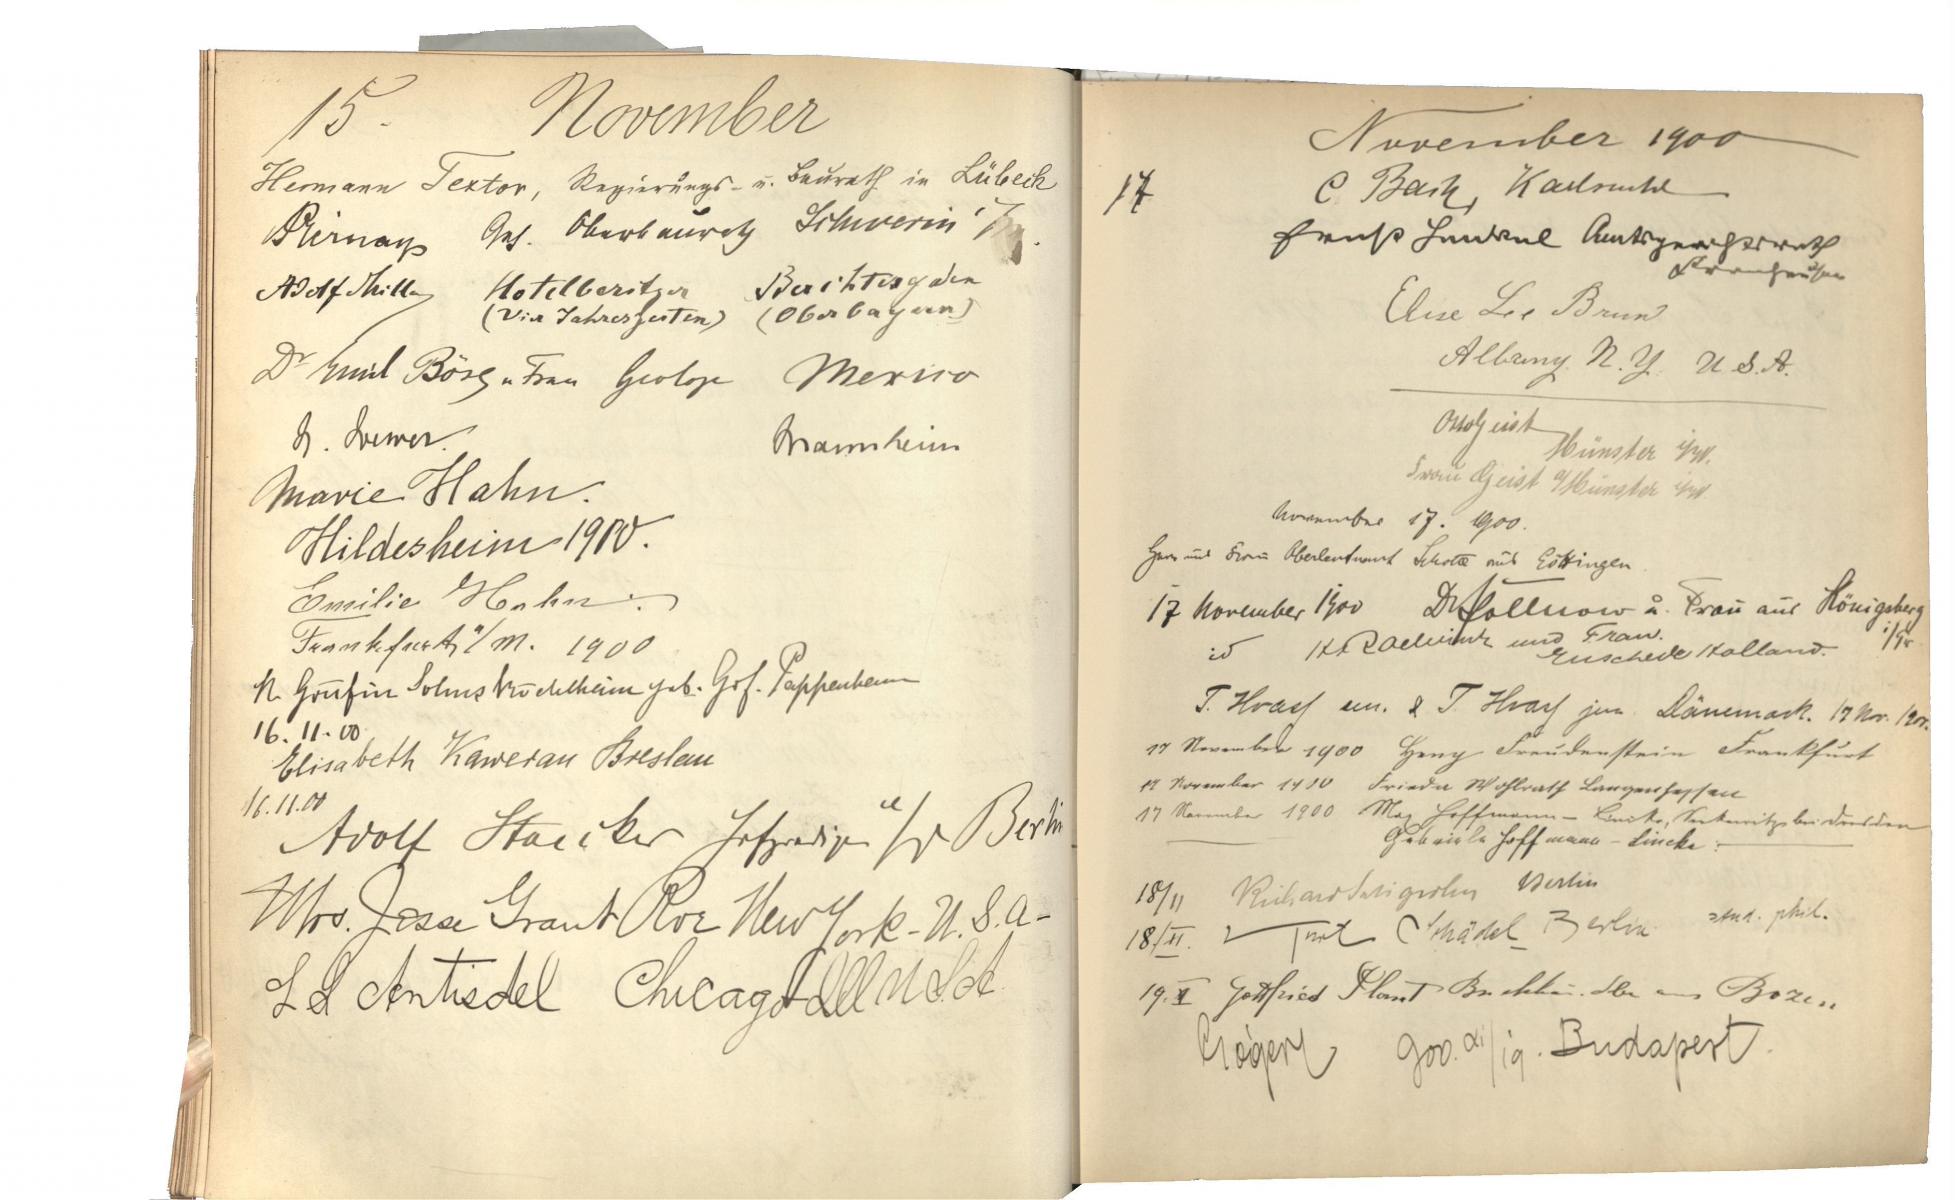 15. November
Hermann Textor, Regierungs- u. Baurath in Lübeck
Piernay Geh. Oberbaurath Schwerin
Adolf Miller Hotelbesitzer Berchtesgaden
(Vier Jahreszeiten) (Oberbayern)
Dr Emil Böse u Frau Geologe Mexico
Mannheim
Marie Hahn.
Hildesheim 1900.
Emilie Hahn.
Frankfurt a/M. 1900
Gräfin Solms Rödelheim geb. Gräf. Pappenheim
16.11.00
Elisabeth Kawerau Breslau
16.11.00
Adolf Stoecker Hofprediger a/D Berlin
Mrs. Jesse Grant Roe New York - U.S.A-
L L Antisdel Chicago Ill U S A
November 1900
17 C Bach, Karlsruhe
Ernst Amtsgerichtsrath
Elise Le Brun
Albany. N.Y. U.S.A.
Otto Geist
Münster i/W.
Frau Geist Münster i/W.
November 17. 1900.
Herr und Frau Oberleutnant aus Göttingen
17 November 1900 Dr Sollnow u. Frau aus Königsberg
i/Pr
id und Frau.
Enschede Holland.
T. Hvass sen. & T. Hvass jun. Dänemark. 17 Nov. 1900.
17 November 1900 Heny Freudenstein Frankfurt
17 November 1900 Frieda Wohlrath Langenhessen
17 November 1900 Max Hoffmann - Lincke, Serkowitz bei Dresden
Gabriele Hoffmann - Lincke.
18/11 Richard Berlin
18/XI. Kurt Schädel Berlin stud. phil.
19.XI Gottfried Plant aus Bozen
900. XI/19. Budapest.